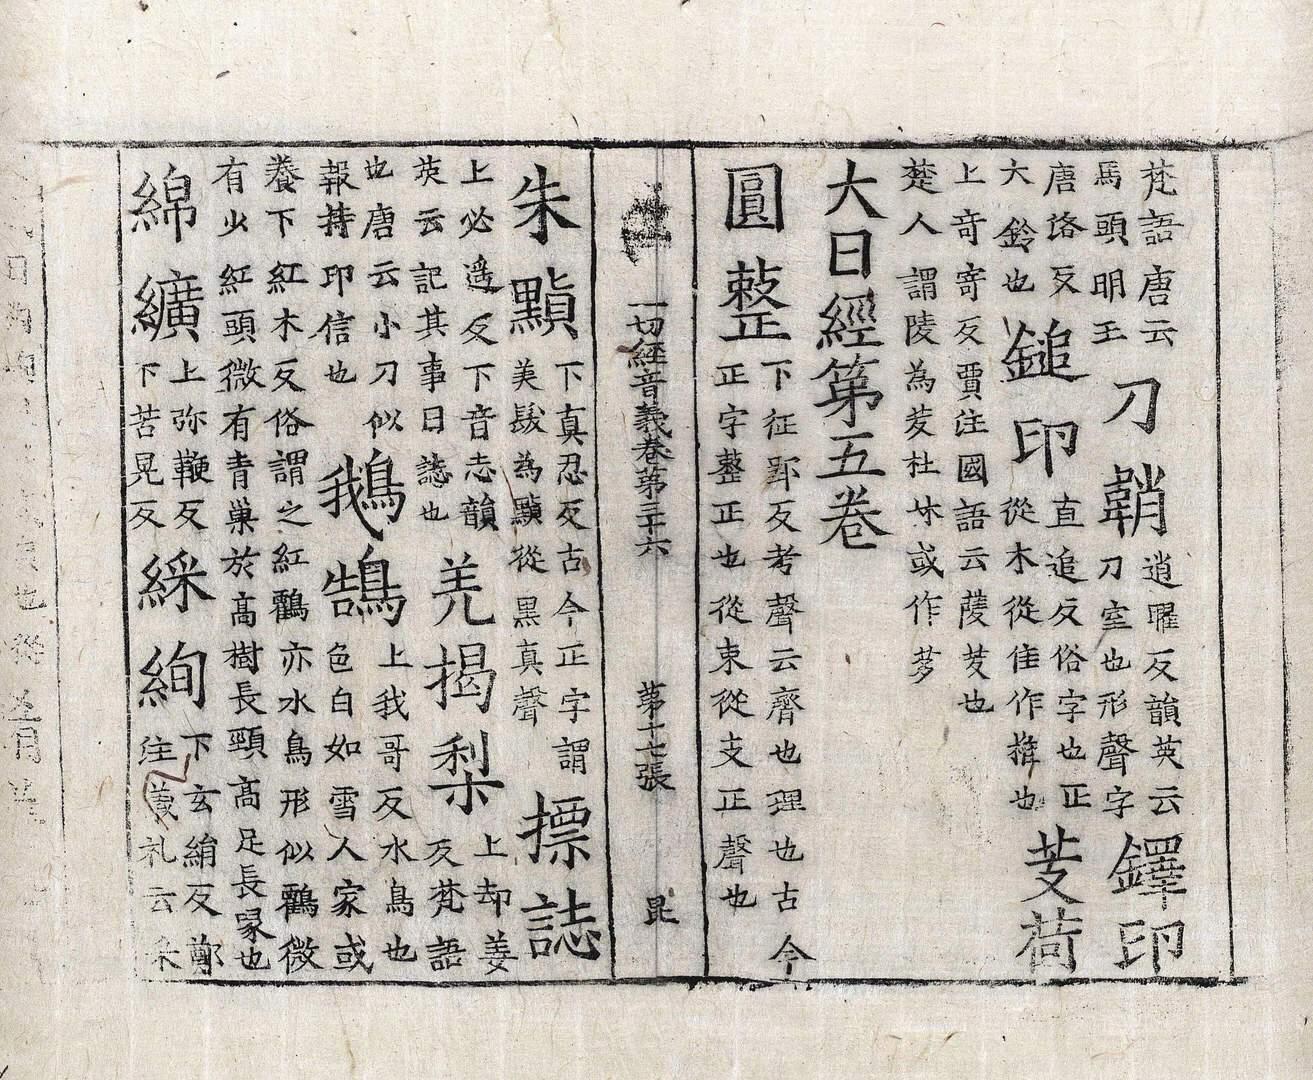 梵語唐云
馬頭明王
刀鞘
逍曜反韻英云
刀室也形聲字
鐸印
唐洛反
大鈴也
鎚印
直追反俗字也正
從木從隹作椎也
芰荷
上竒寄反賈注國語云蔆芰也
楚人謂陵為芰杜林或作茤
大日經第五卷
圓整
下征郢反考聲云齊也理也古今
正字整正也從束從攴正聲也
一切經音義卷第三十六 第十七張 毘
朱䫬
下真忍反古今正字謂
美髮為䫬從黑真聲
摽誌
上必遥反下音志韻
英云記其事曰誌也
羌揭梨
上却姜
反梵語
也唐云小刀似
報持印信也
鵝鵠
上我哥反水鳥也
色白如雪人家或
養下紅木反俗謂之紅鸖亦水鳥形似鸖微
有少紅頭微有青巢於高樹長頸高足長㖨也
綿纊
上弥鞭反
下苦晃反
綵絢
下玄絹反鄭
注義礼云采